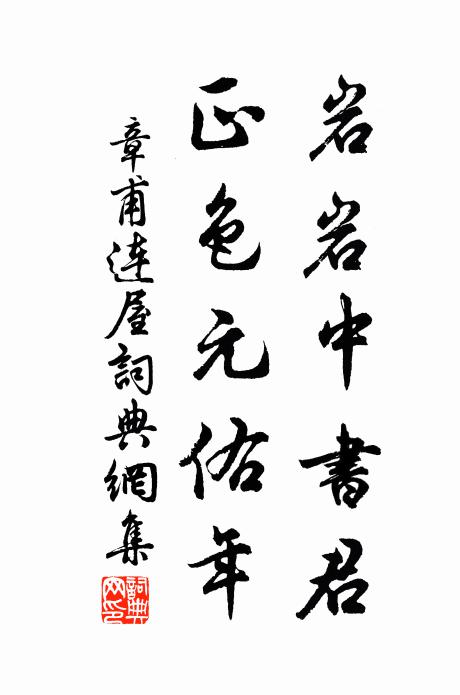 岩岩中書君
正色元佑年
章甫連屋詞典網集
詞典网印